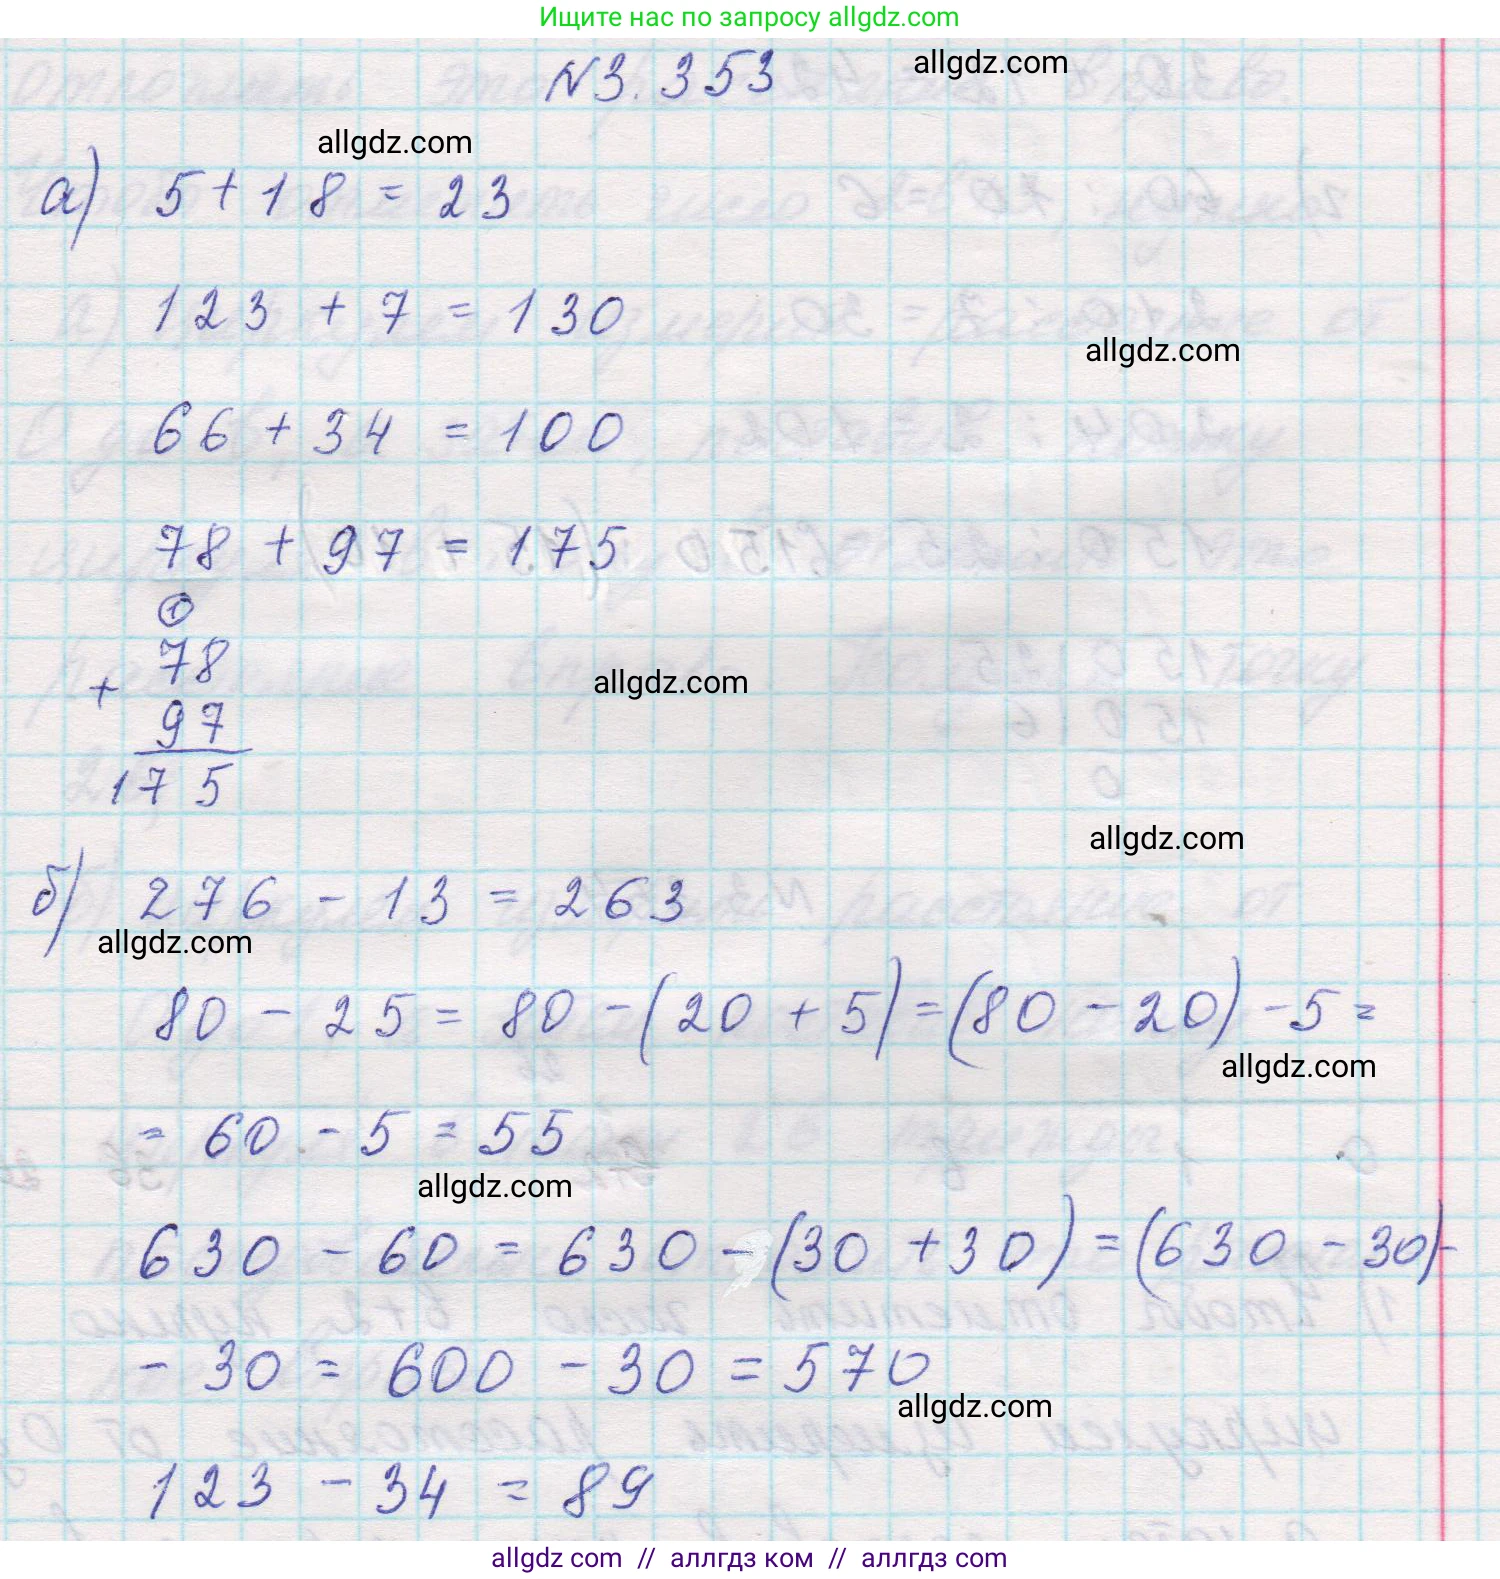 Ищите нас по запросу allgdz.com
N3.353
allgdz.com
allgdz.com
а) 5 + 18 = 23
123 + 7 = 130
allgdz.com
66 + 34 = 100
78 + 97 = 175
1
78
+
allgdz.com
97
175
allgdz.com
б) 276 - 13 = 263
allgdz.com
80 - 25 = 80 - (20 + 5) = (80 - 20) - 5 =
allgdz.com
= 60 - 5 = 55
allgdz.com
630 - 60 = 630 - (30 + 30) = (630 - 30) -
- 30 = 600 - 30 = 570
allgdz.com
123 - 34 = 89
allgdz com // аллгдз ком // аллгдз com